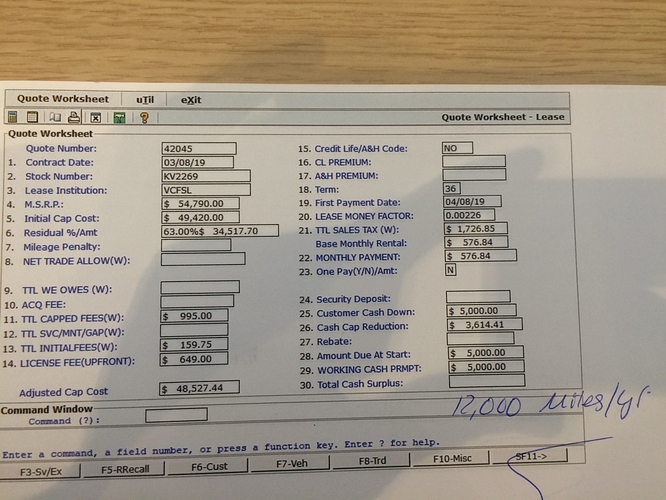 Quote Worksheet uTil eXit
Quote Worksheet - Lease
Quote Worksheet
Quote Number: 42045
1. Contract Date: 03/08/19
2. Stock Number: KV2269
3. Lease Institution: VCFSL
4. M.S.R.P.: $ 54,790.00
5. Initial Cap Cost: $ 49,420.00
6. Residual %/Amt 63.00%$ 34,517.70
7. Mileage Penalty:
8. NET TRADE ALLOW(W):
9. TTL WE OWES (W):
10. ACQ FEE:
11. TTL CAPPED FEES(W): $ 995.00
12. TTL SVC/MNT/GAP(W):
13. TTL INITIALFEES(W): $ 159.75
14. LICENSE FEE(UPFRONT): $ 649.00
Adjusted Cap Cost $ 48,527.44
15. Credit Life/A&H Code: NO
16. CL PREMIUM:
17. A&H PREMIUM:
18. Term: 36
19. First Payment Date: 04/08/19
20. LEASE MONEY FACTOR: 0.00226
21. TTL SALES TAX (W): $ 1,726.85
Base Monthly Rental: $ 576.84
22. MONTHLY PAYMENT: $ 576.84
23. One Pay(Y/N)/Amt: N
24. Security Deposit:
25. Customer Cash Down: $ 5,000.00
26. Cash Cap Reduction: $ 3,614.41
27. Rebate:
28. Amount Due At Start: $ 5,000.00
29. WORKING CASH PRMPT: $ 5,000.00
30. Total Cash Surplus:
12,000 Miles/yr.
Command Window
Command (?):
Enter a command, a field number, or press a function key. Enter ? for help.
F3-Sv/Ex F5-RRecall F6-Cust F7-Veh F8-Trd F10-Misc SF11->